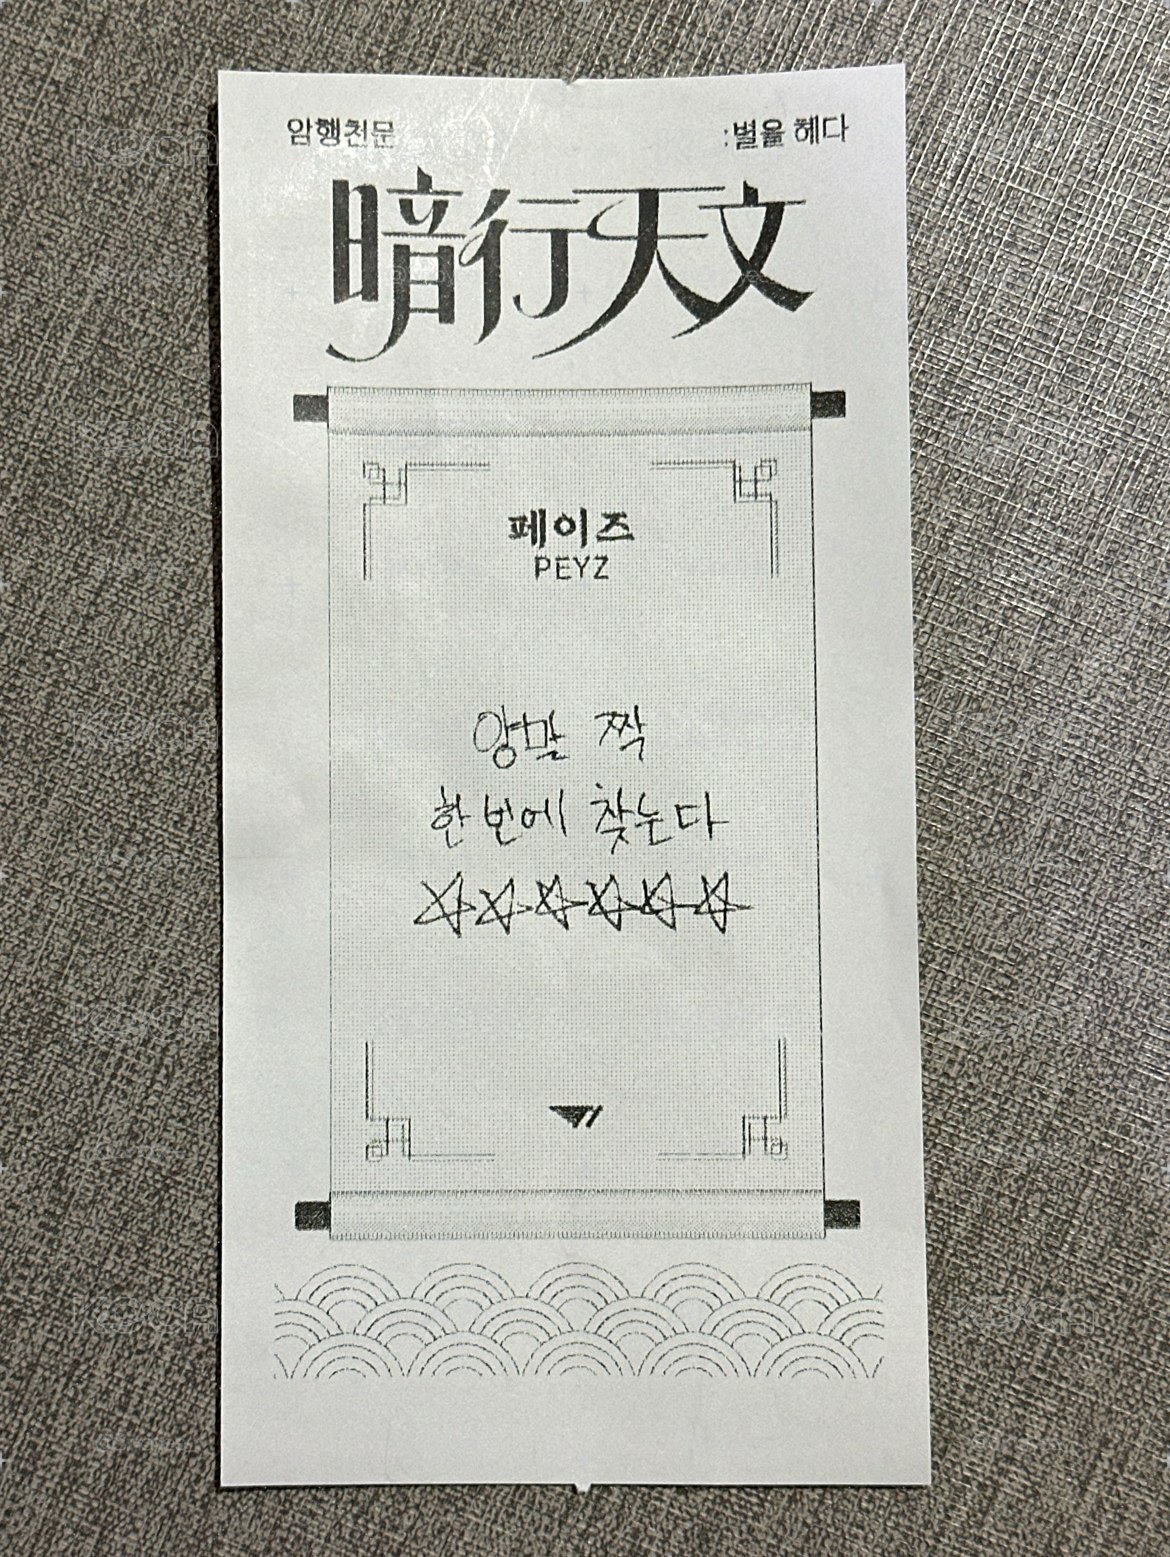 암행천문 :별을 헤다
暗行天文
페이즈
PEYZ
양말 짝
한번에 찾는다
☆☆☆☆☆☆